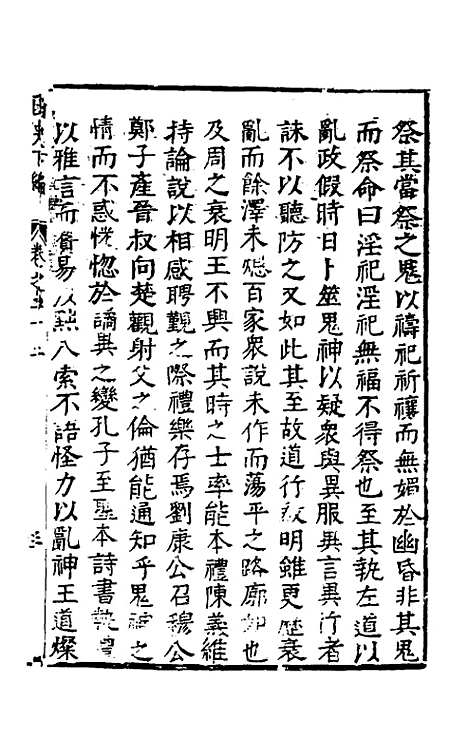 祭其當祭之鬼以禱祀祈禳而無媚於幽昏非其鬼
而祭命曰淫祀淫祀無福不得祭也至其執左道以
亂政假時日卜筮鬼神以疑衆與異服異言異行者
誅不以聽防之又如此其至故道行敎明雖更歷衰
亂而餘澤未殄百家衆說未作而蕩平之路廓如也
及周之衰明王不興而其時之士率能本禮陳義維
持論說以相感聘覲之際禮樂存焉劉康公召穆公
鄭子產晉叔向楚觀射父之倫猶能通知乎鬼神之
情而不惑恍惚於譎異之變孔子至聖本詩書執禮
以雅言而賛易以黜八索不語怪力以亂神王道燦
下編 卷之 十二 三